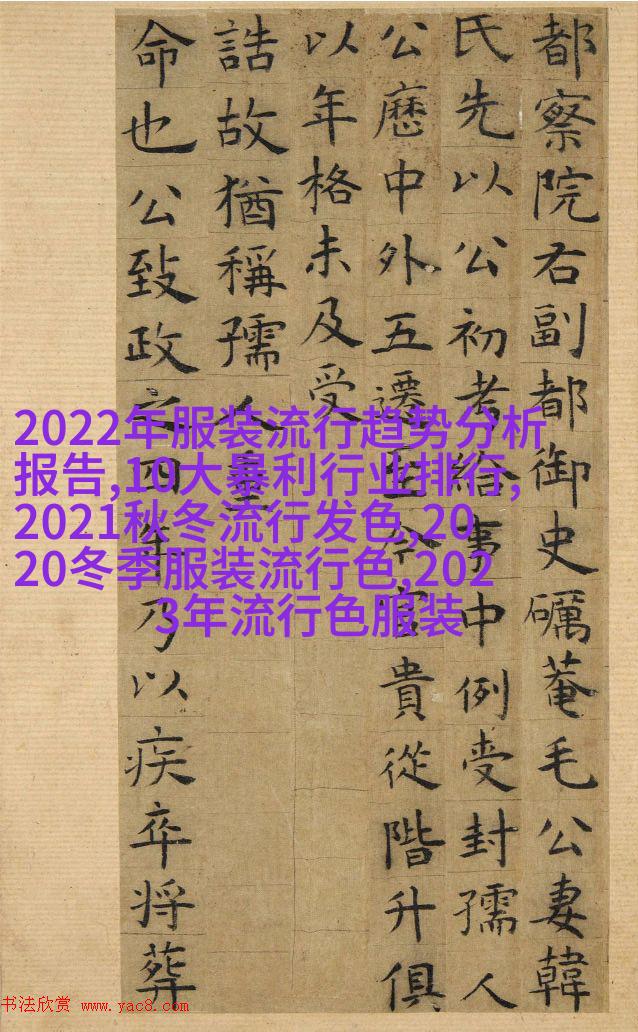 都察院右副都御史礪菴毛公妻韓
氏先以公初考給事中例受封孺人
公歷中外五遷至今官貴從階升俱
以年格未及受
誥故猶稱孺人
命也公致政之四年乃以疾卒將葬
2022年服装流行趋势分析
报告,10大暴利行业排行,
2021秋冬流行发色,20
20冬季服装流行色,202
3年流行色服装
书法欣赏 www.yac8.com